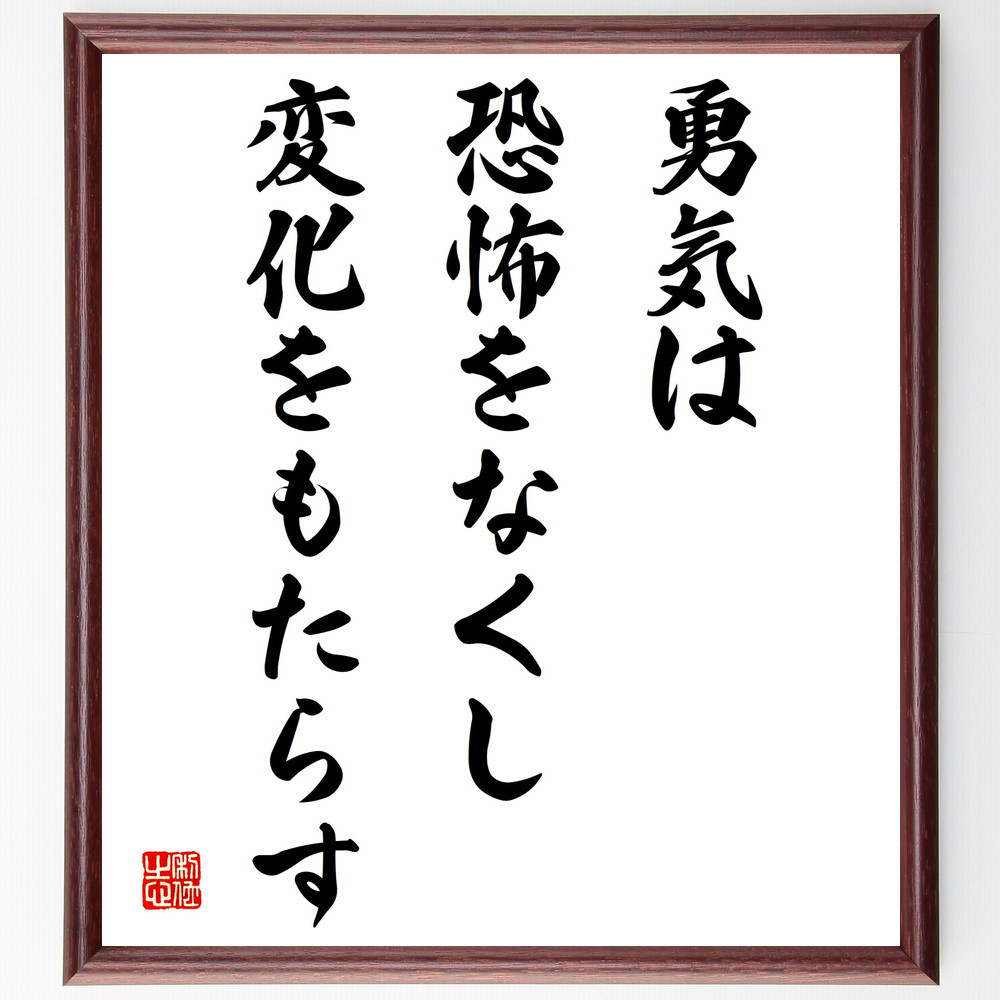 勇気は
恐怖をなくし
変化をもたらす